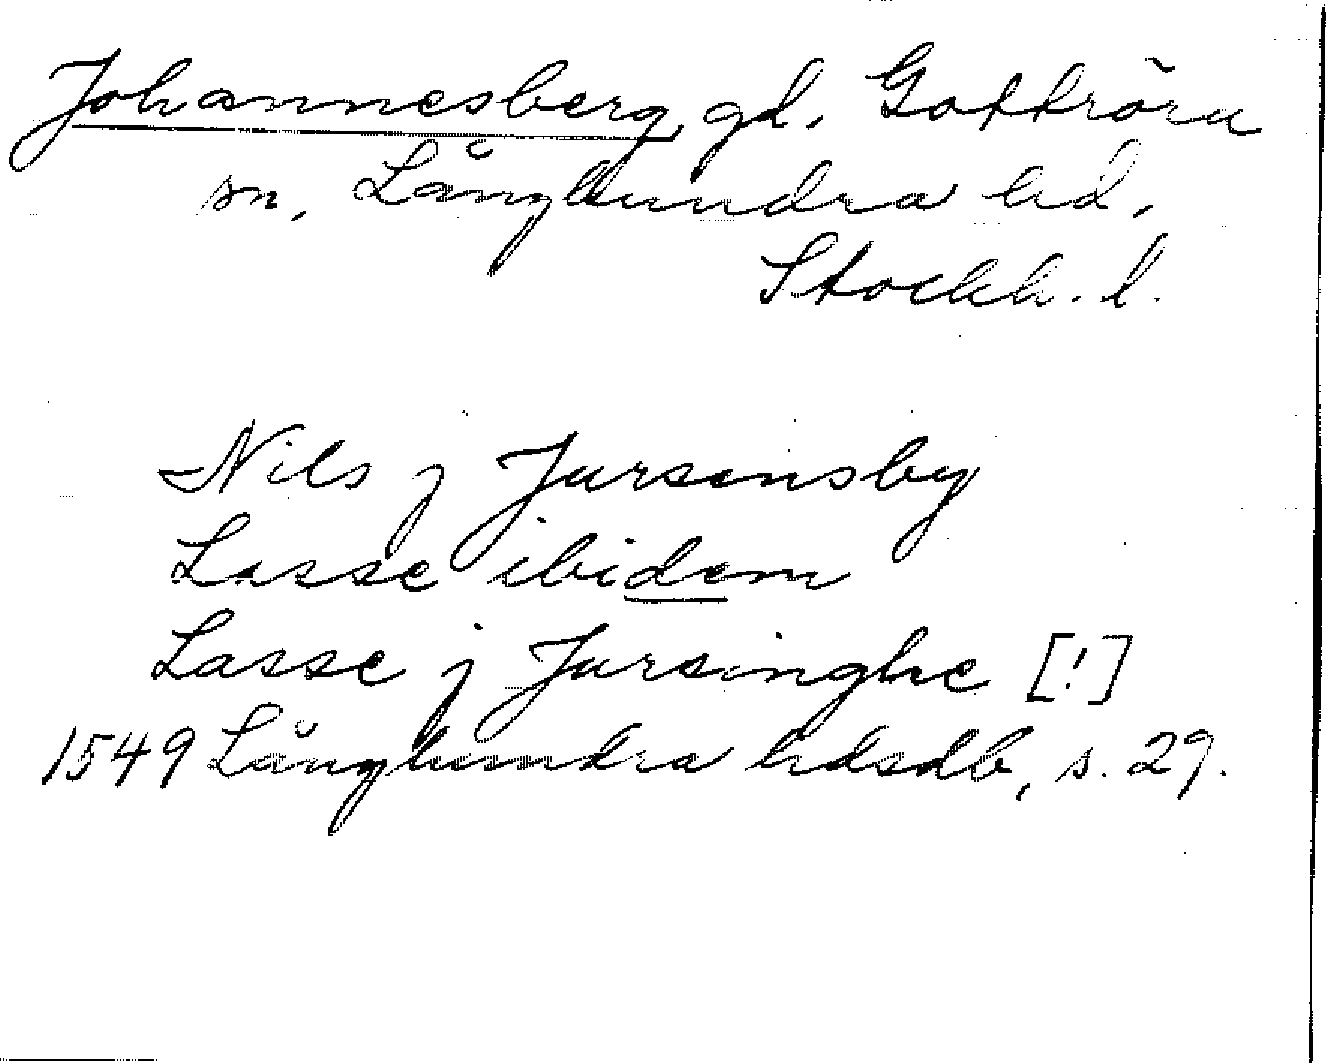 Johannesberg, gd. Gottröra
sn, Långhundra hd,
Stockh. l.
Nils j Jursensby
Lasse ibidem
Lasse j Jursinghe [!]
1549 Långhundra hdsdb, s. 29.